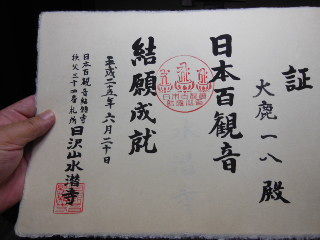 証
大鹿一八殿
日本百観音
結願成就
平成二十五年六月二十日
日本百観音結願寺
秩父三十四番札所日沢山水潜寺